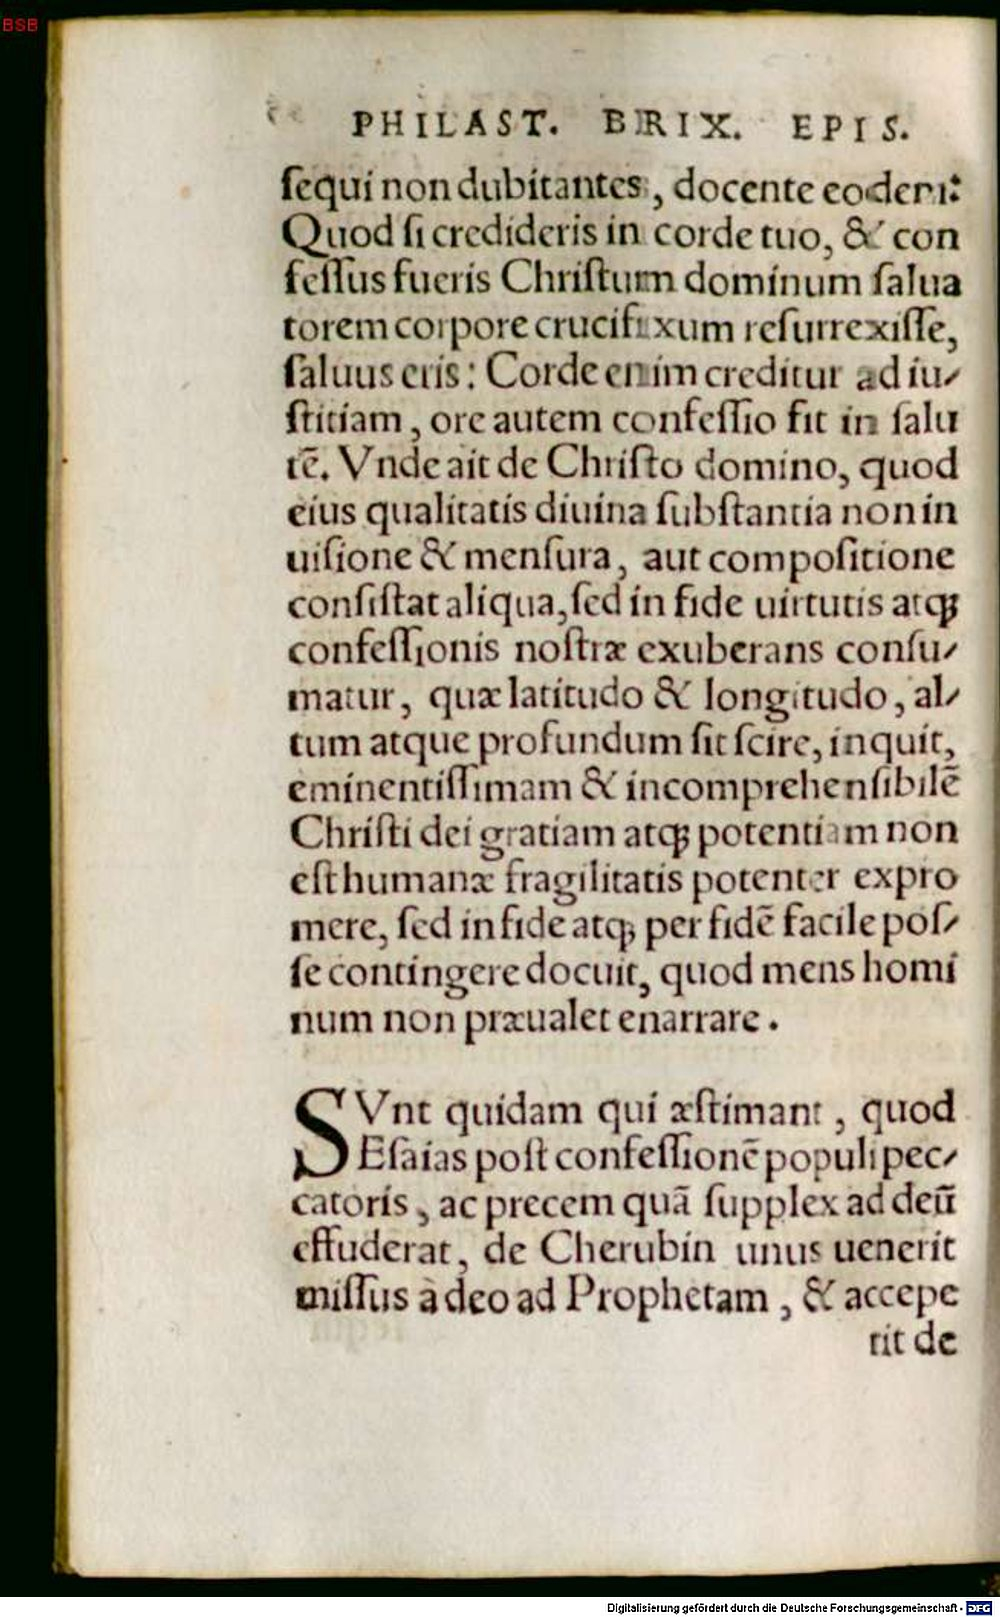 BSB
PHILAST. BRIX. EPIS.
ſequi non dubitantes, docente eodem:
Quod ſi credideris in corde tuo, & con
feſſus fueris Chriſtum dominum ſalua
torem corpore crucifixum reſurrexiſſe,
ſaluus eris: Corde enim creditur ad iu⸗
ſtitiam, ore autem confeſſio fit in ſalu
tē. Vnde ait de Chriſto domino, quod
eius qualitatis diuina ſubſtantia non in
uiſione & menſura, aut compoſitione
conſiſtat aliqua, ſed in fide uirtutis atq́;
confeſſionis noſtræ exuberans conſu⸗
matur, quæ latitudo & longitudo, al⸗
tum atque profundum ſit ſcire, inquit,
eminentiſſimam & incomprehenſibilē
Chriſti dei gratiam atq́; potentiam non
eſt humanæ fragilitatis potenter expro
mere, ſed in fide atq́; per fidē facile poſ⸗
ſe contingere docuit, quod mens homi
num non præualet enarrare.
SVnt quidam qui æſtimant, quod
Eſaias poſt confeſſionē populi pec⸗
catoris, ac precem quā ſupplex ad deū
effuderat, de Cherubin unus uenerit
miſſus à deo ad Prophetam, & accepe
rit de
Digitalisierung gefördert durch die Deutsche Forschungsgemeinschaft - DFG